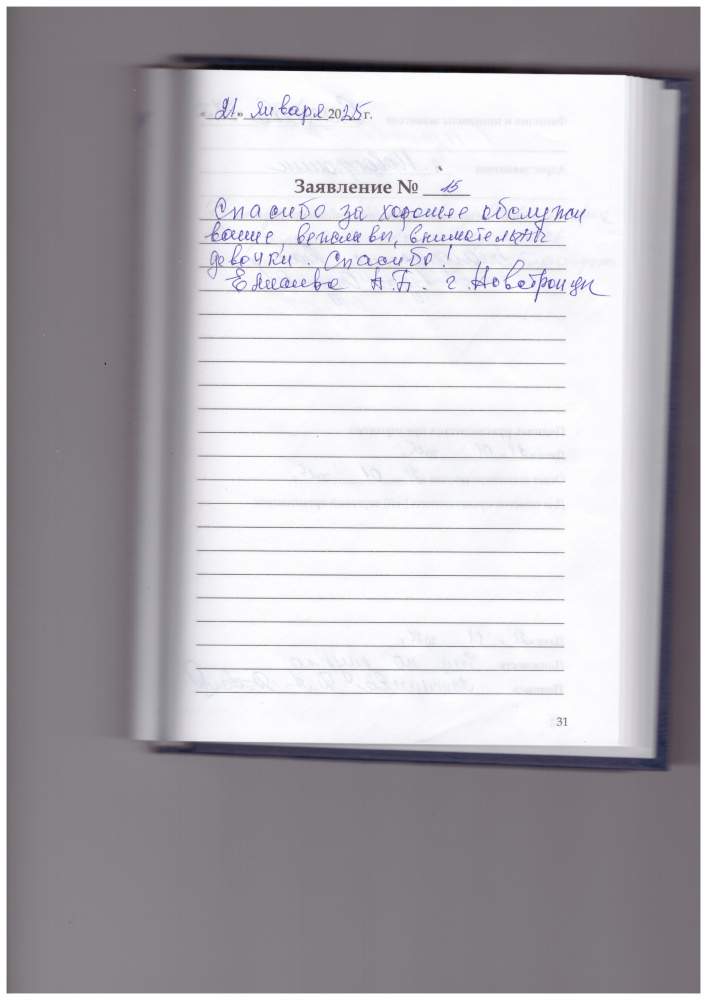 « 21 » января 2025 г.
Заявление № 15
Спасибо за хорошее обслужи
вание, вежливы, внимательны
девочки. Спасибо!
А.Б. г. Новотроицк
31